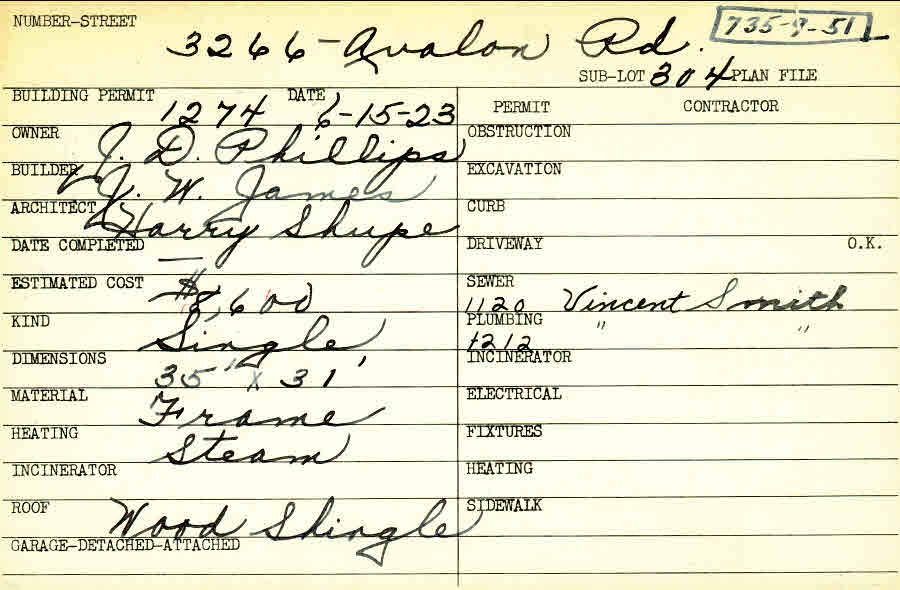 NUMBER-STREET
3266-Avalon Rd.
735-9-51
SUB-LOT 304 PLAN FILE
BUILDING PERMIT 1274 DATE 6-15-23
OWNER J. D. Phillips
BUILDER J. W. James
ARCHITECT Harry Shupe
DATE COMPLETED —
ESTIMATED COST $8,600
KIND Single
DIMENSIONS 35' x 31'
MATERIAL Frame
HEATING Steam
INCINERATOR
ROOF Wood Shingle
GARAGE-DETACHED-ATTACHED
PERMIT CONTRACTOR
OBSTRUCTION
EXCAVATION
CURB
DRIVEWAY O.K.
SEWER 1120 Vincent Smith
PLUMBING " "
1212
INCINERATOR
ELECTRICAL
FIXTURES
HEATING
SIDEWALK